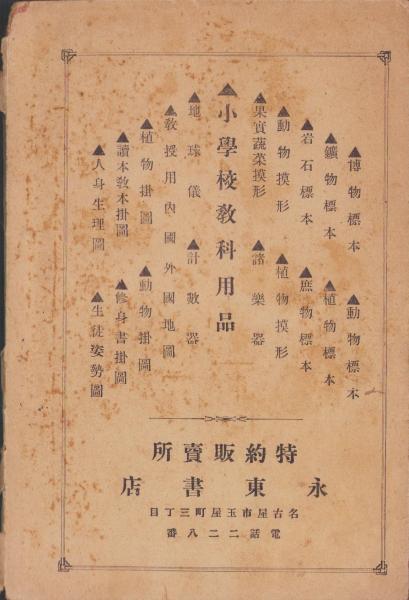 ▲博物標本
▲動物標本
▲鑛物標本
▲植物標本
▲岩石標本
▲庶物標本
▲動物摸形
▲植物摸形
▲果實蔬菜摸形
▲諸樂器
▲小學校敎科用品
▲地球儀
▲計數器
▲敎授用內國外國地圖
▲植物掛圖
▲動物掛圖
▲讀本敎本掛圖
▲修身書掛圖
▲人身生理圖
▲生徒姿勢圖
所賣販約特
店書東永
目丁三町屋玉市屋古名
番八二二話電